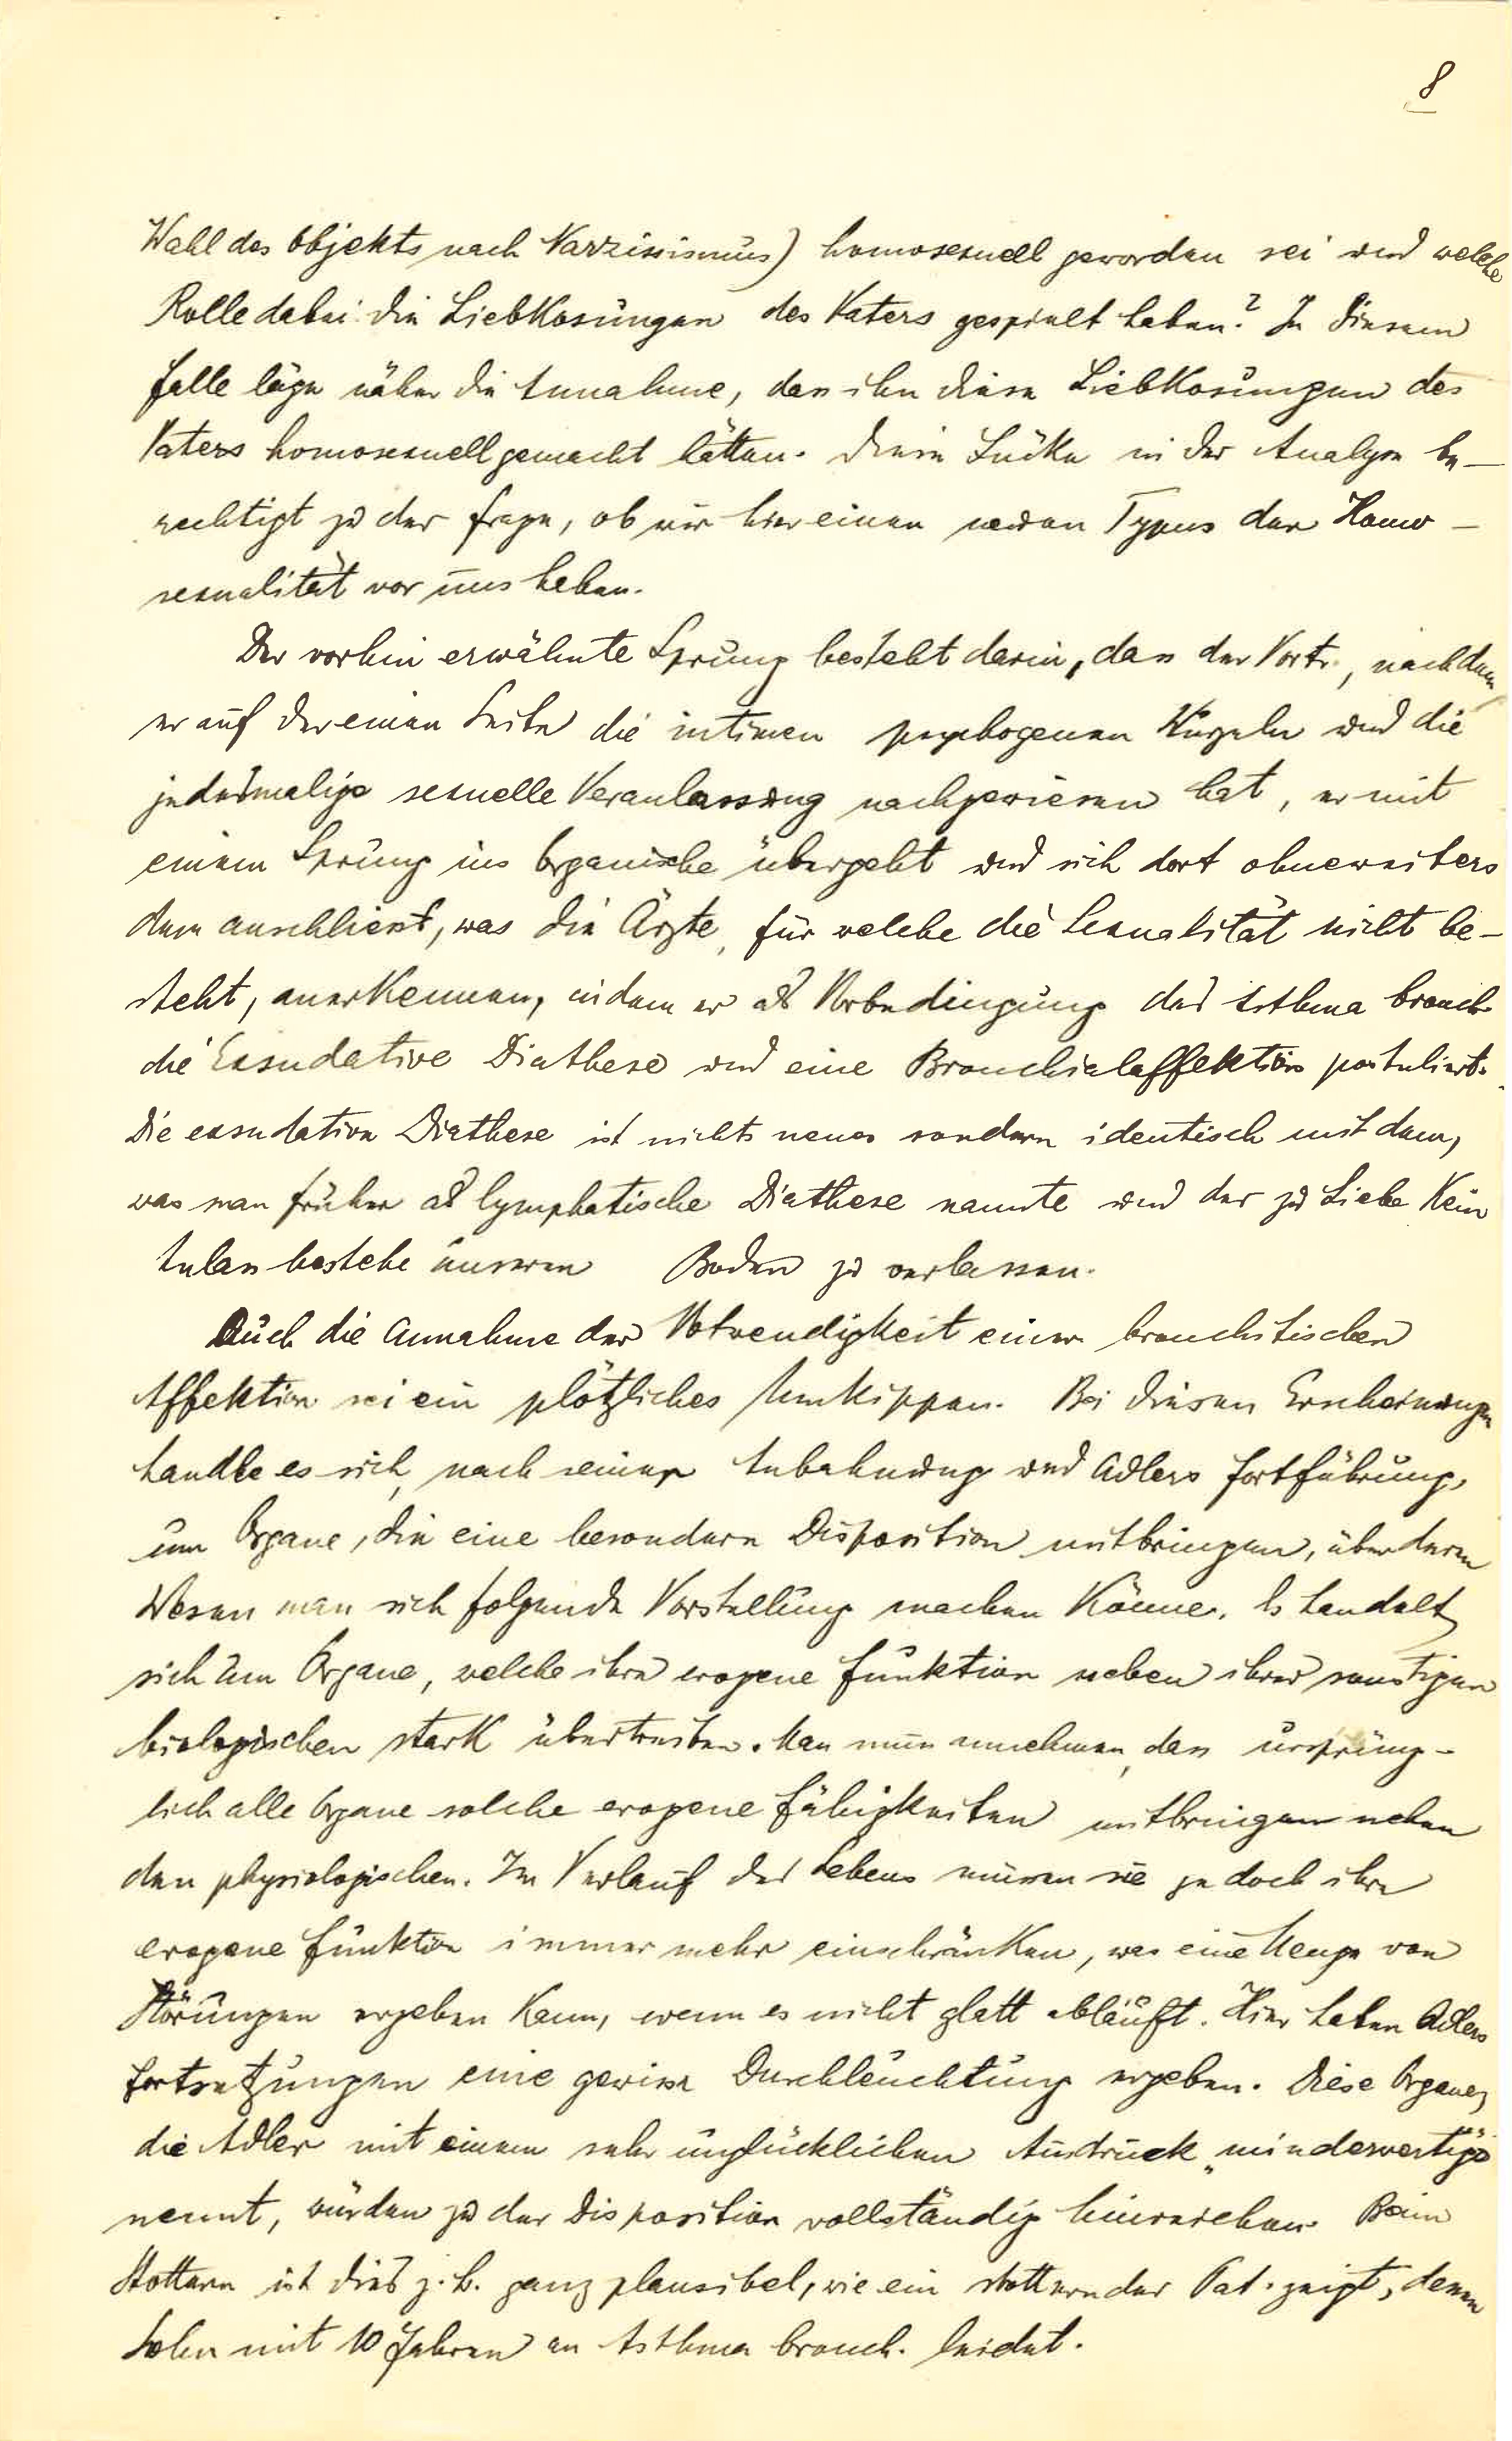 8
Wahl des Objekts nach Narzissismus) homosexuell geworden sei und welche
Rolle dabei die Liebkosungen des Vaters gespielt haben? In diesem
Falle läge näher die Annahme, dass ihn diese Liebkosungen des
Vaters homosexuell gemacht hätten. Diese Lücke in der Analyse be-
rechtigt zu der Frage, ob wir hier einen neuen Typus der Homo-
sexualität vor uns haben.
Der vorhin erwähnte Sprung besteht darin, dass der Vortr., nachdem
er auf der einen Seite die intimen psychogenen Wurzeln und die
jedesmalige sexuelle Veranlassung nachgewiesen hat, er mit
einem Sprung ins Organische übergeht und sich dort ohneweiters
dem anschliesst, was die Ärzte, für welche die Sexualität nicht be-
steht, anerkennen, indem er als Vorbedingung des Asthma bronch.
die Exsudative Diathese und eine Bronchialaffektion postuliert.
Die exsudative Diathese ist nichts neues sondern identisch mit dem,
was man früher als lymphatische Diathese nannte und der zu Liebe kein
Anlass bestehe unseren Boden zu verlassen.
Auch die Annahme der Notwendigkeit einer bronchitischen
Affektion sei ein plötzliches Umkippen. Bei diesen Erscheinungen
handle es sich, nach seiner Anbahnung und Adlers Fortführung,
um Organe, die eine besondere Disposition mitbringen, über deren
Wesen man sich folgende Vorstellung machen könne. Es handelt
sich um Organe, welche ihre erogene Funktion neben ihrer sonstigen
biologischen stark übertreiben. Man muss annehmen, dass ursprüng-
lich alle Organe solche erogene Fähigkeiten mitbringen neben
den physiologischen. Im Verlauf des Lebens müssen sie jedoch ihre
erogene Funktion immer mehr einschränken, was eine Menge von
Störungen ergeben kann, wenn es nicht glatt abläuft. Hier haben Adlers
Fortsetzungen eine gewisse Durchleuchtung ergeben. Diese Organe,
die Adler mit einem sehr unglücklichen Ausdruck „minderwertige"
nennt, würden zu der Disposition vollständig hinreichen. Beim
Stottern ist dies z.B. ganz plausibel, wie ein stotternder Pat. zeigt, dessen
Sohn mit 10 Jahren an Asthma bronch. leidet.